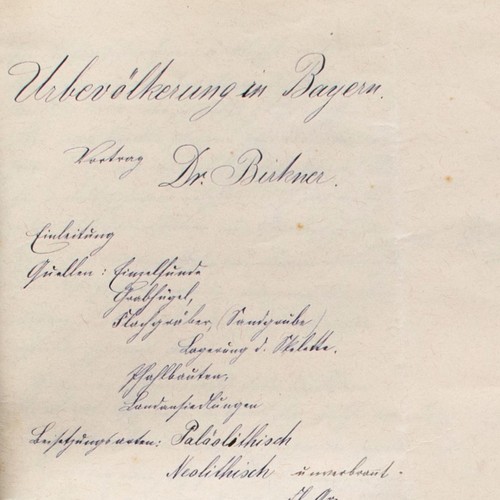 Urbevölkerung in Bayern.
Vortrag Dr. Birkner.
Einleitung
Quellen: Einzelfunde
Grabhügel,
Flachgräber, (Sandgrube)
Lagerung d. Skelette.
Pfahlbauten,
Landansiedlungen
Beisetzungsarten: Paläolithisch
Neolithisch unverbrannt.